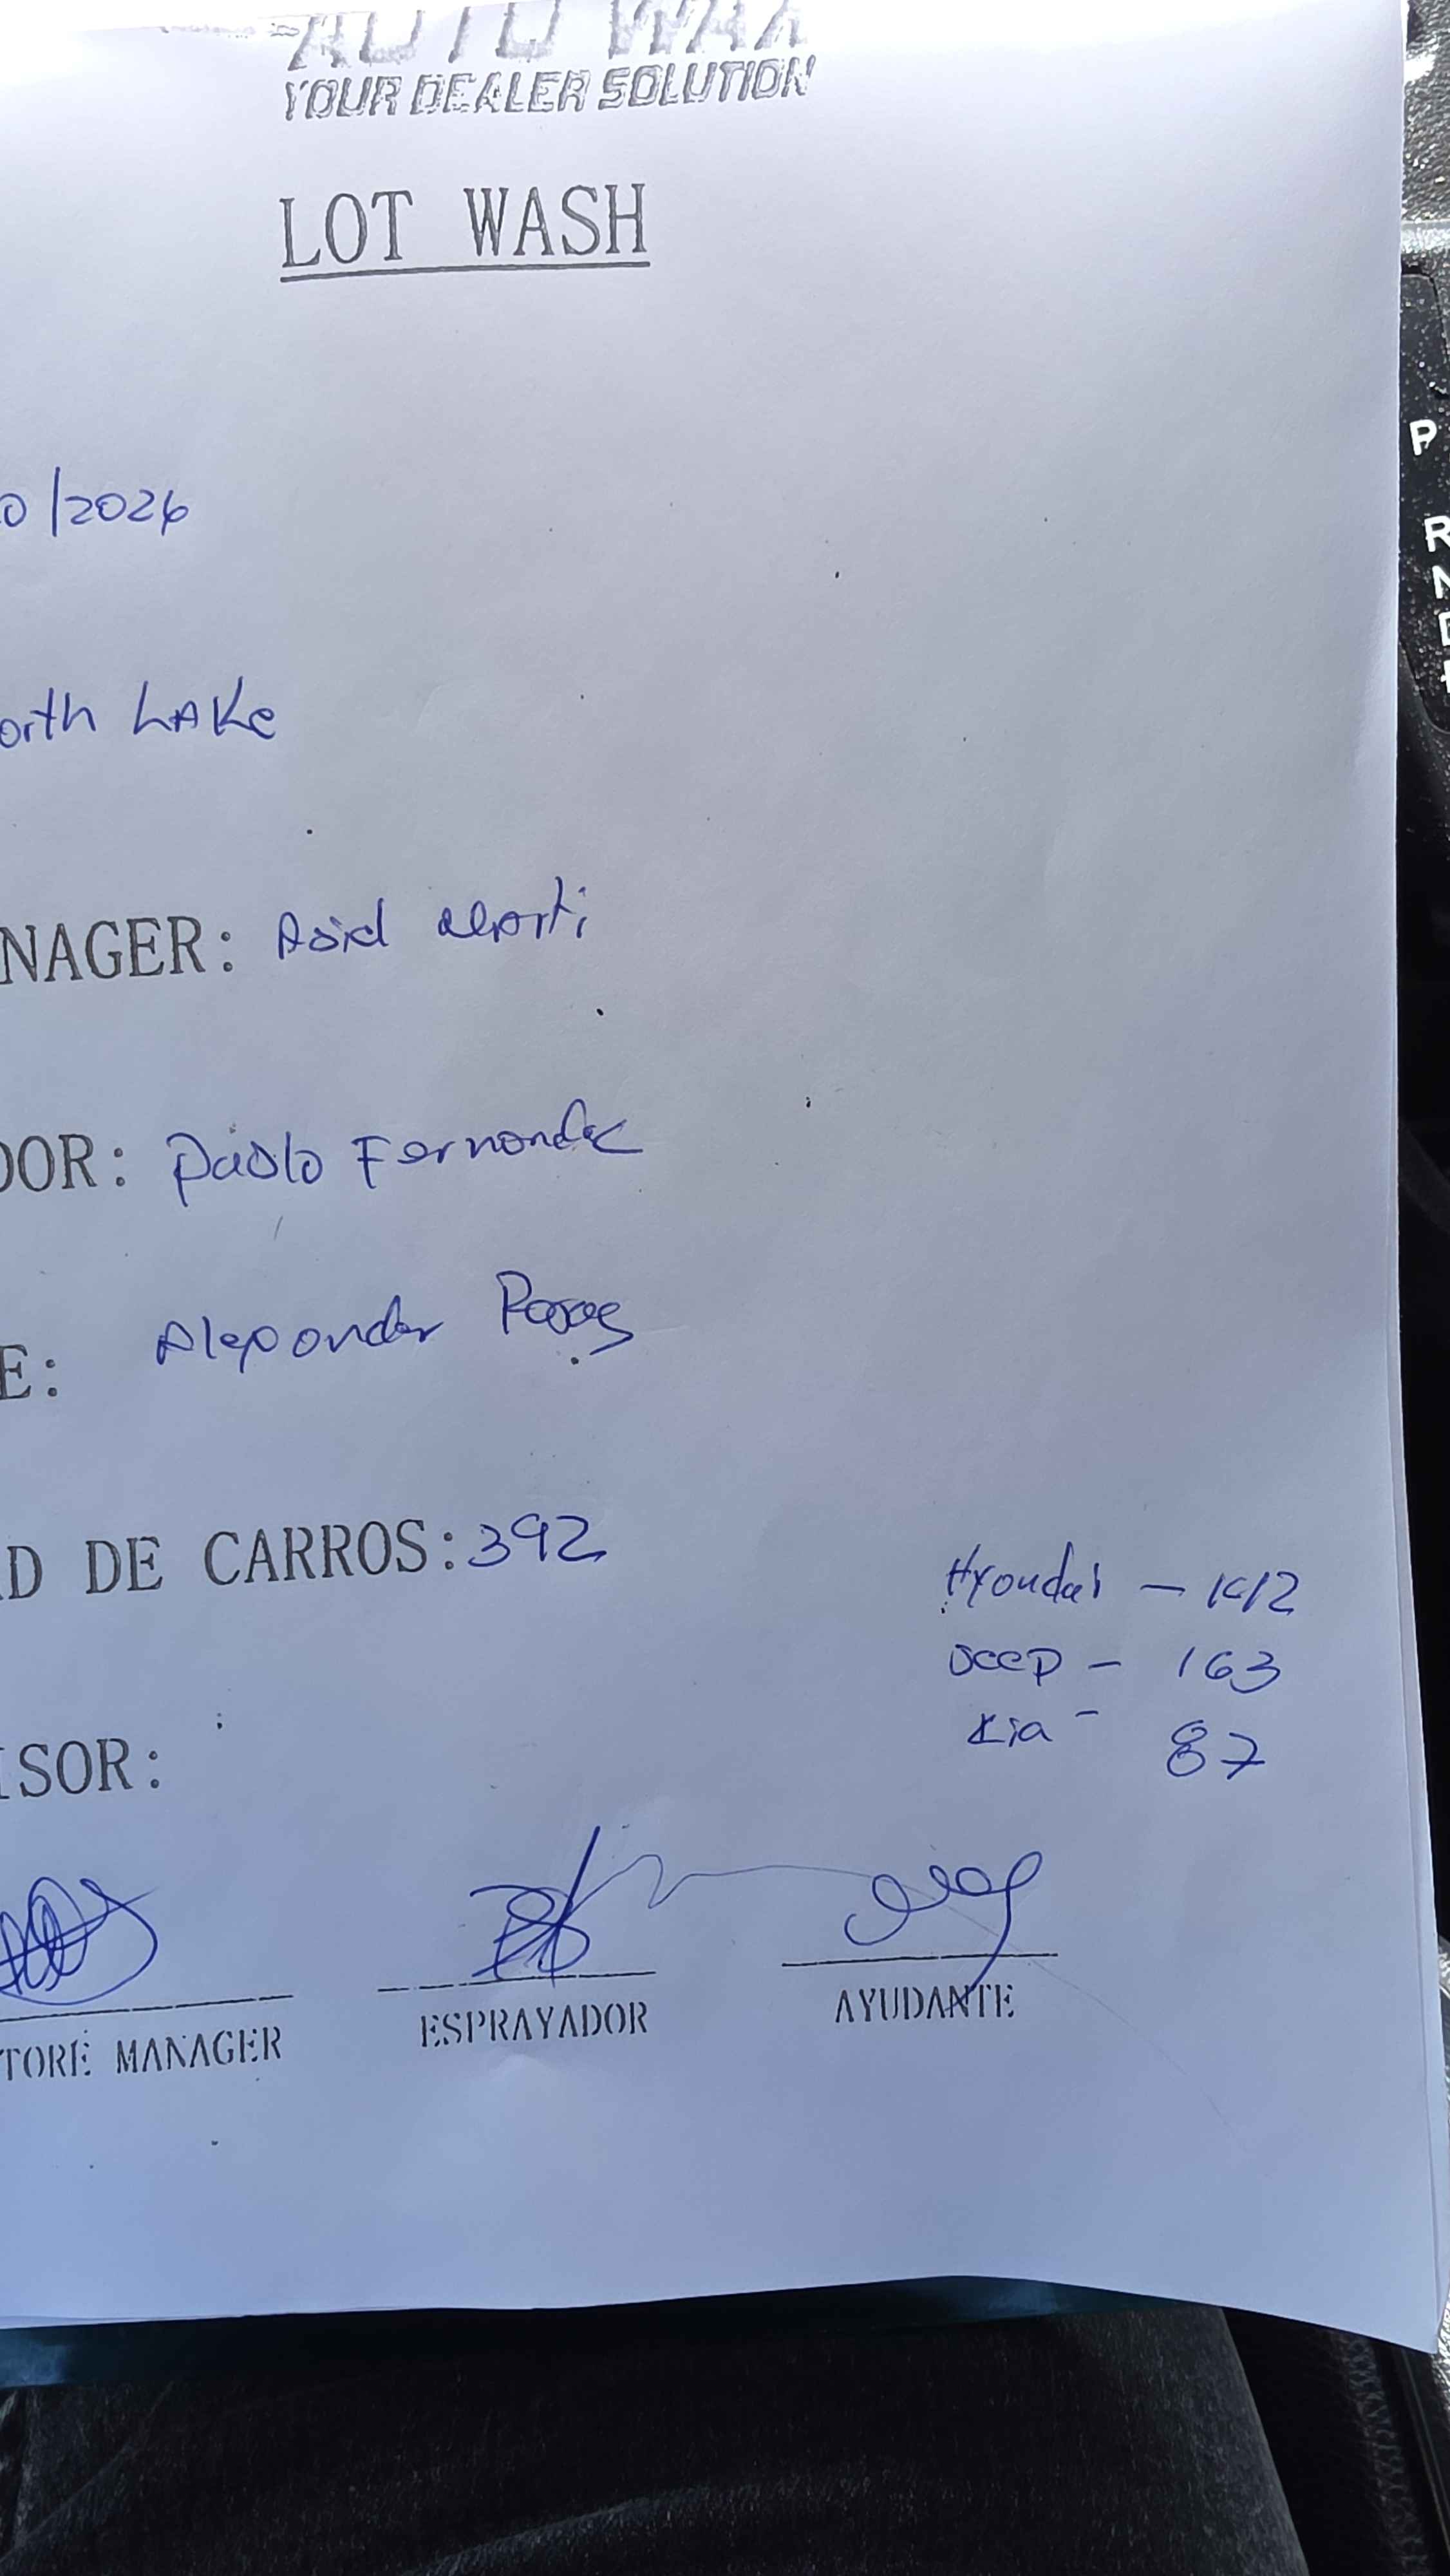 AUTO WAX
YOUR DEALER SOLUTION
LOT WASH
0/2026
orth LAKe
NAGER:
DOR: Pablo Fernandez
E: Alexander
D DE CARROS: 392
Hyundai - 142
Jeep - 163
Kia - 87
ISOR:
TORE MANAGER
ESPRAYADOR
AYUDANTE
P
R
N
D